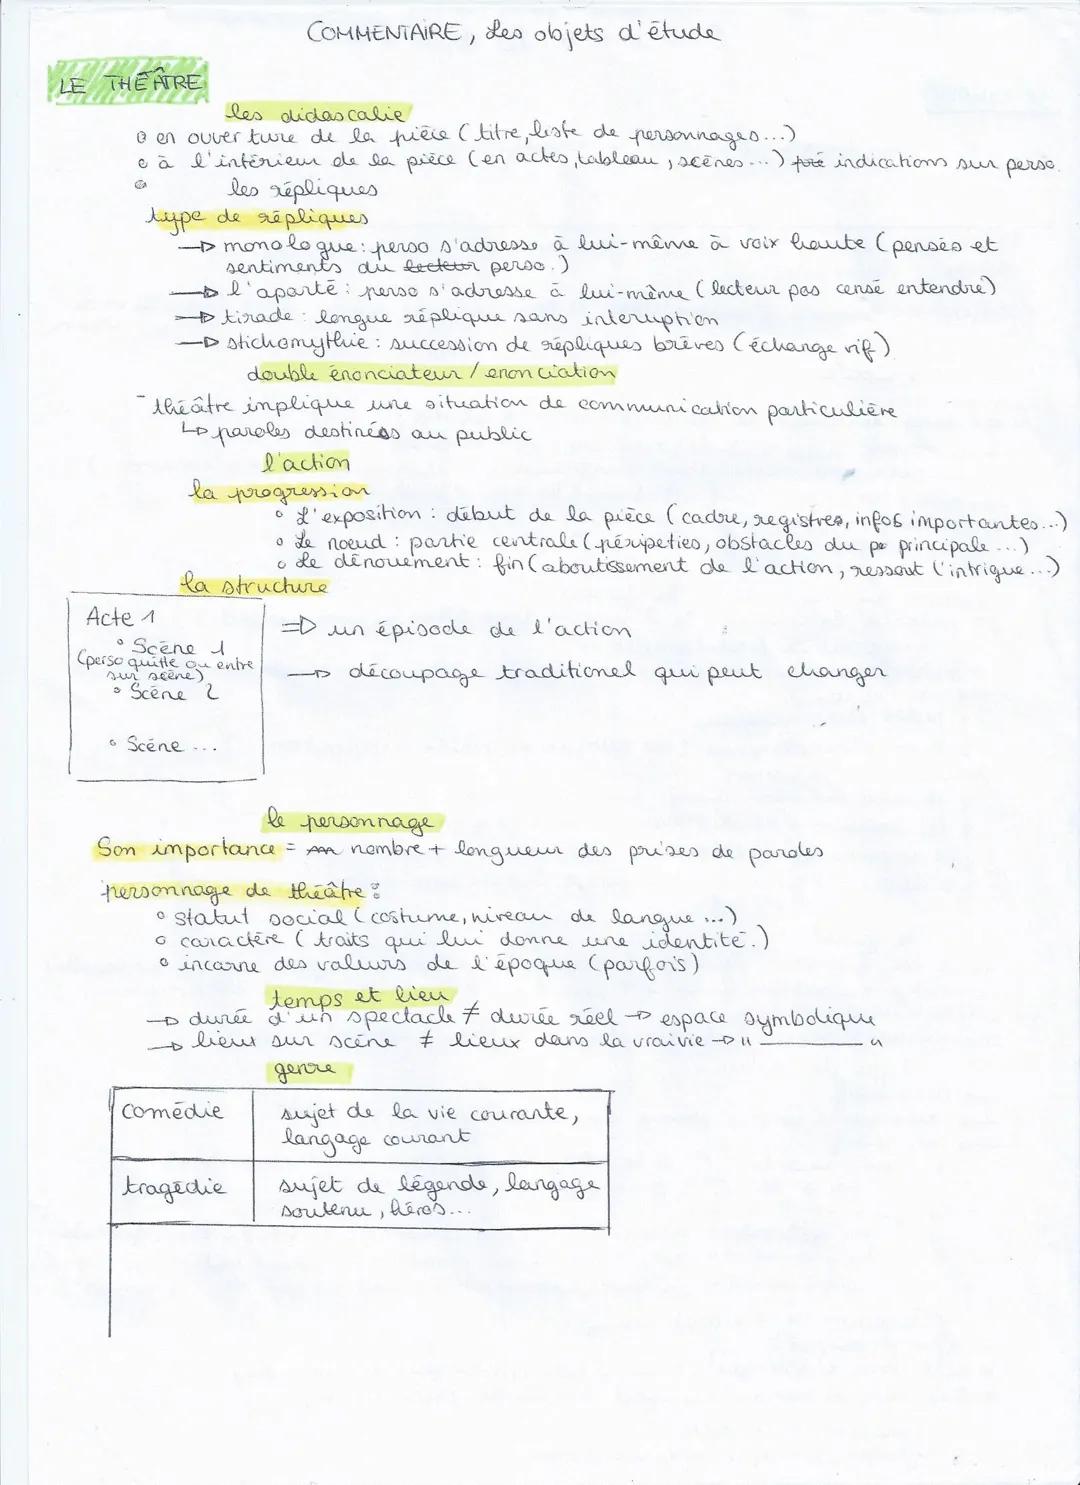 COMMENTAIRE, Les objets d'étude
LE THÉÂTRE
les didascalie
en ouverture de la pièce (titre, liste de personnages...)
à l'intérieur de la pièce (en actes, tableau, scènes...) indications sur perso.
les répliques
type de répliques
→ monologue: perso s'adresse à lui-même à voix haute (pensés et
sentiments du lecteur perso.)
→ l'aparté: perso s'adresse à lui-même (lecteur pas censé entendre)
→ tirade: longue réplique sans interuption
→ stichomythie: succession de répliques brèves (échange vif)
double énonciateur / enonciation
- théâtre implique une situation de communication particulière
↳ paroles destinées au public
l'action
la progression
° L'exposition: début de la pièce (cadre, registres, infos importantes...)
° Le noeud: partie centrale (péripeties, obstacles du pe principale...)
° Le dénouement: fin (aboutissement de l'action, ressout l'intrigue...)
la structure
Acte 1
° Scène 1
(perso quitte ou entre
sur scène)
° Scène 2
° Scène ...
⇒ un épisode de l'action
→ découpage traditionel qui peut changer
le personnage
Son importance = nombre + longueur des prises de paroles
personnage de théâtre:
° statut social (costume, niveau de langue...)
° caractère (traits qui lui donne une identité.)
° incarne des valeurs de l'époque (parfois)
temps et lieu
→ durée d'un spectacle ≠ durée réel → espace symbolique
→ lieux sur scène ≠ lieux dans la vraivie → " ———— "
genre
comédie
sujet de la vie courante,
langage courant
tragédie
sujet de légende, langage
soutenu, héros...